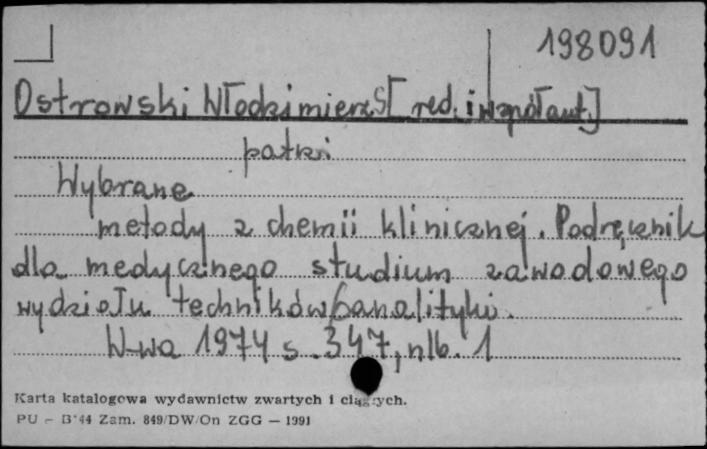 198091
Ostrowski Włodzimierz S[red. i współaut.]
patrz:
Wybrane
metody z chemii klinicznej. Podręcznik
dla medycznego studium zawodowego
wydziału techników analityki.
W-wa 1974 s. 347, nlb. 1
Karta katalogowa wydawnictw zwartych i ciągłych.
PU – B'44 Zam. 849/DW/On ZGG — 1991